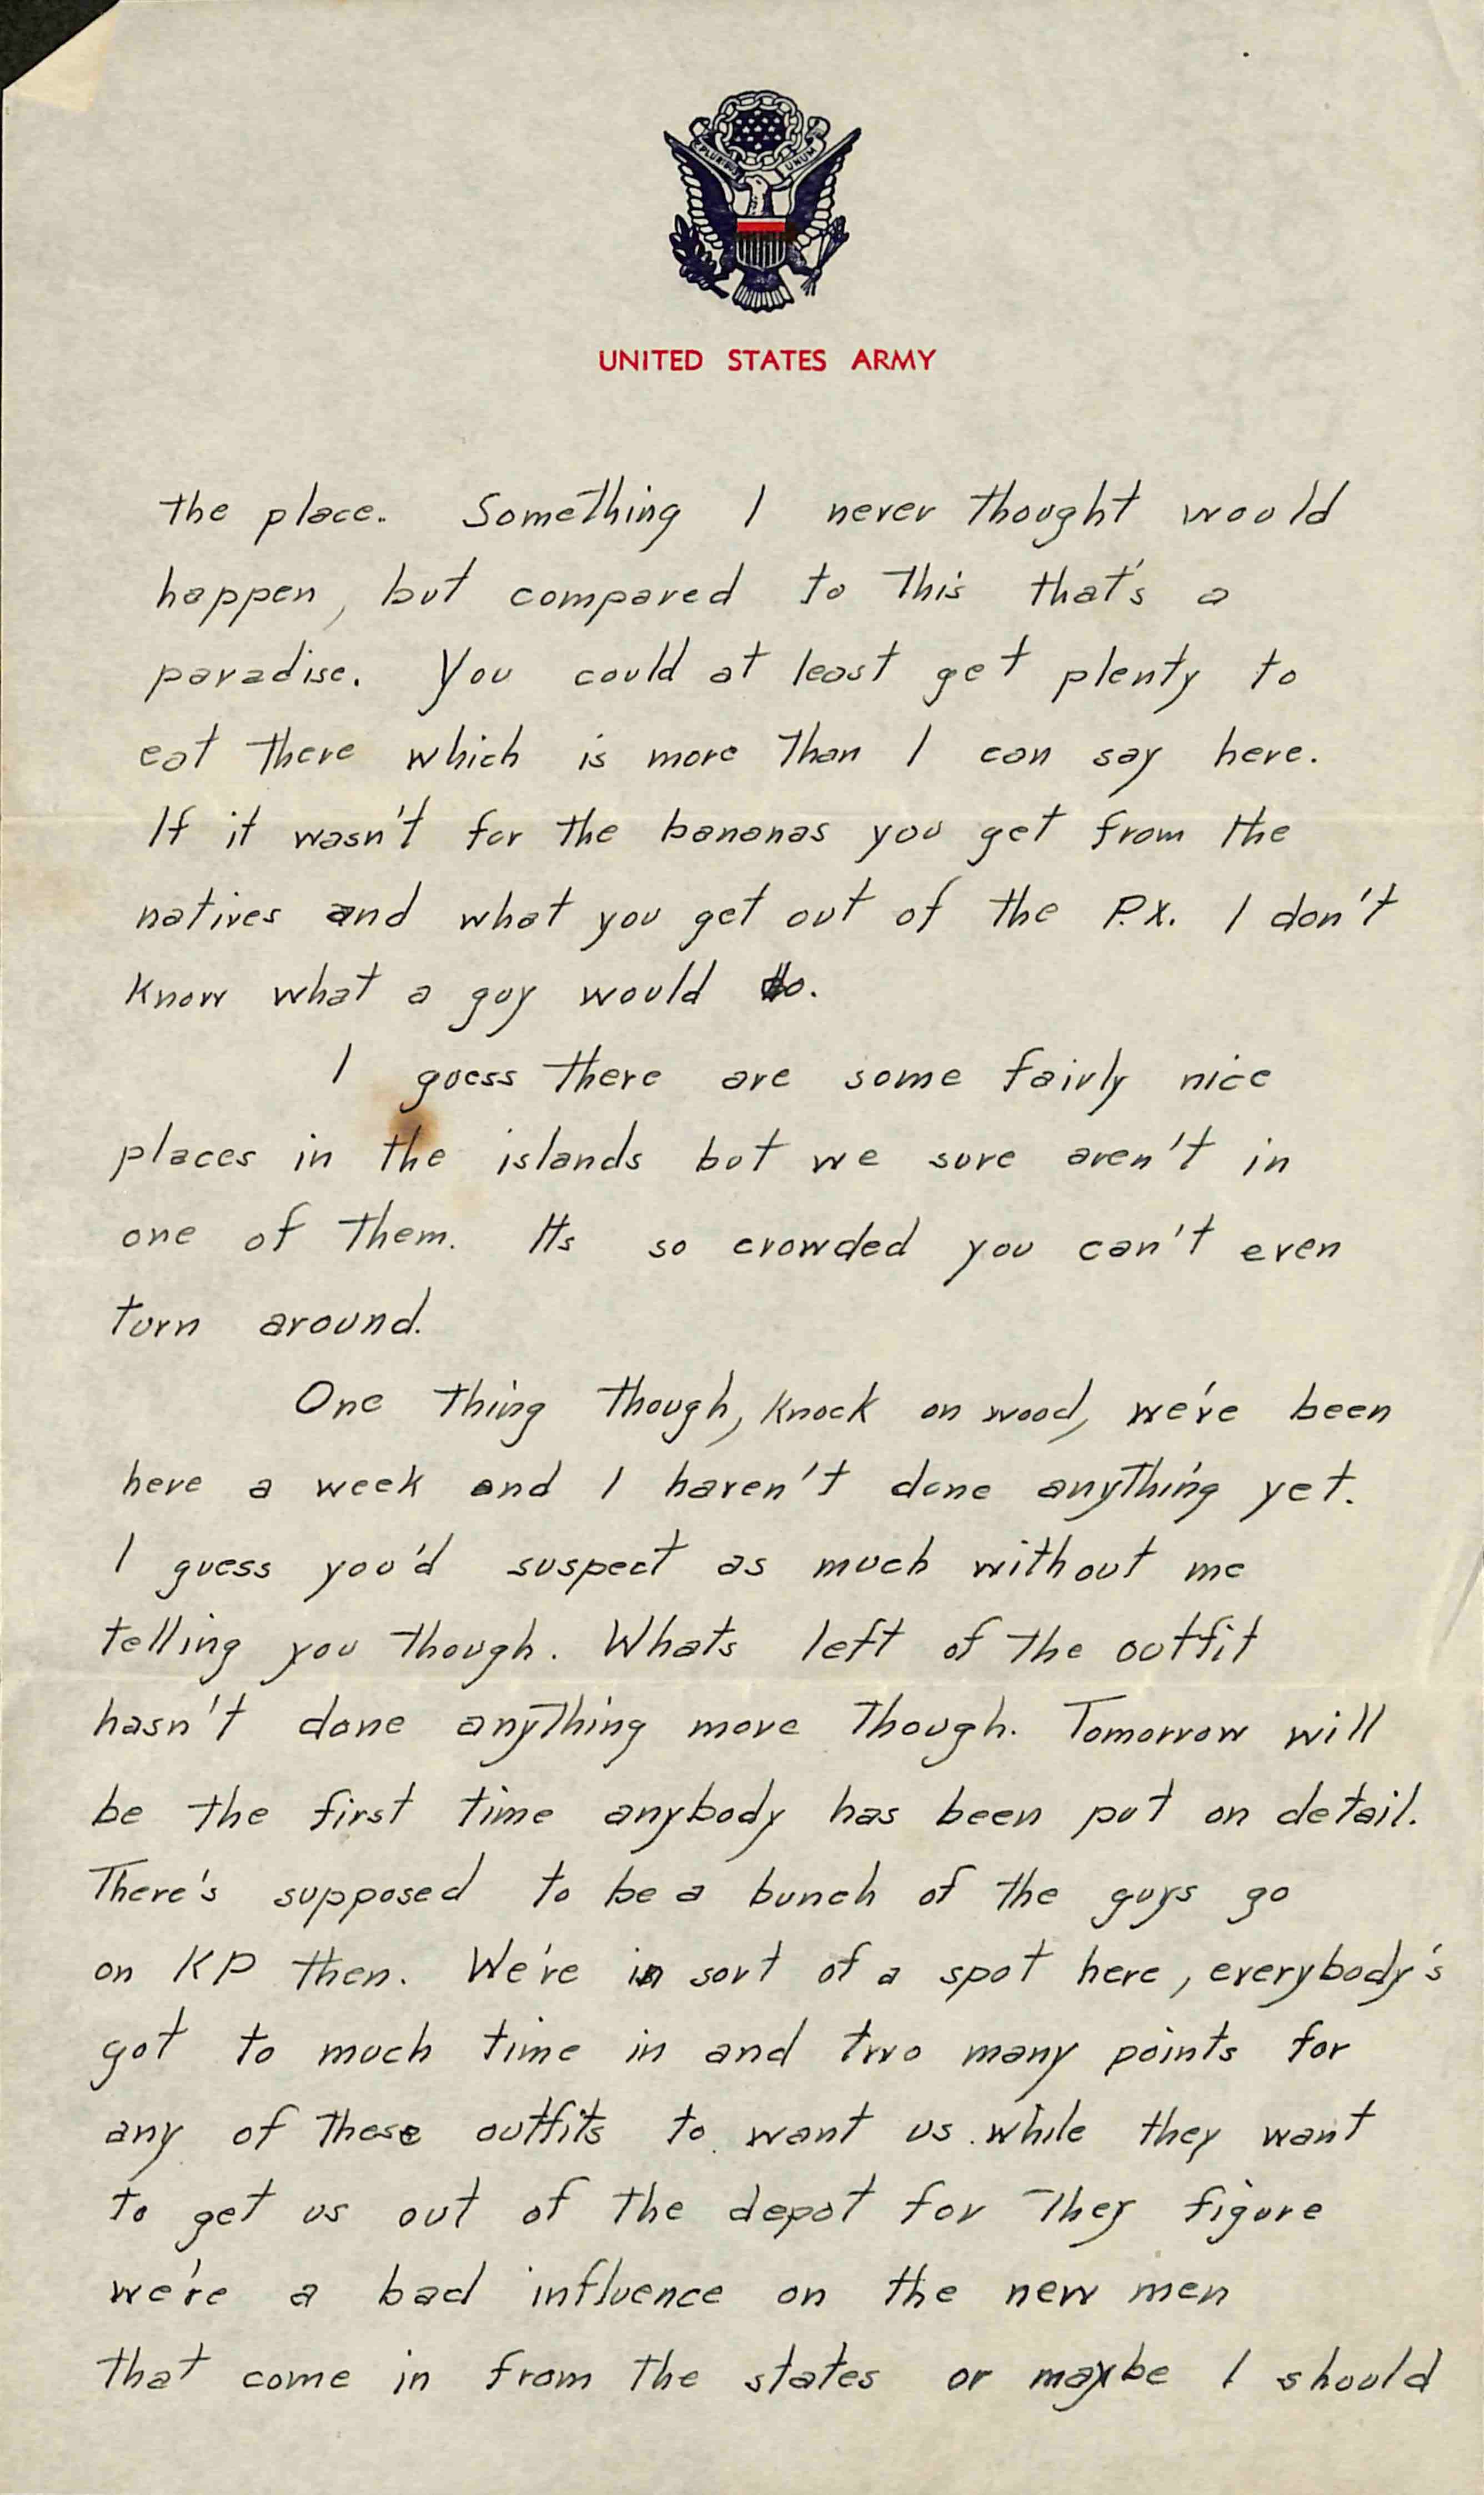 PLURIBUS UNUM
UNITED STATES ARMY
the place. Something I never thought would
happen, but compared to this that's a
paradise. You could at least get plenty to
eat there which is more than I can say here.
If it wasn't for the bananas you get from the
natives and what you get out of the P.X. I don't
know what a guy would do.
I guess there are some fairly nice
places in the islands but we sure aren't in
one of them. Its so crowded you can't even
turn around.
One thing though, knock on wood, we're been
here a week and I haven't done anything yet.
I guess you'd suspect as much without me
telling you though. Whats left of the outfit
hasn't done anything more though. Tomorrow will
be the first time anybody has been put on detail.
There's supposed to be a bunch of the guys go
on KP then. We're in sort of a spot here, everybody's
got to much time in and two many points for
any of these outfits to want us while they want
to get us out of the depot for they figure
we're a bad influence on the new men
that come in from the states or maybe I should